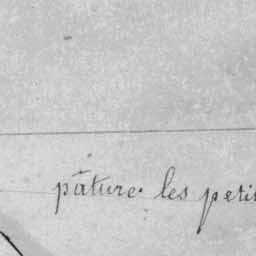 pâture. les petit